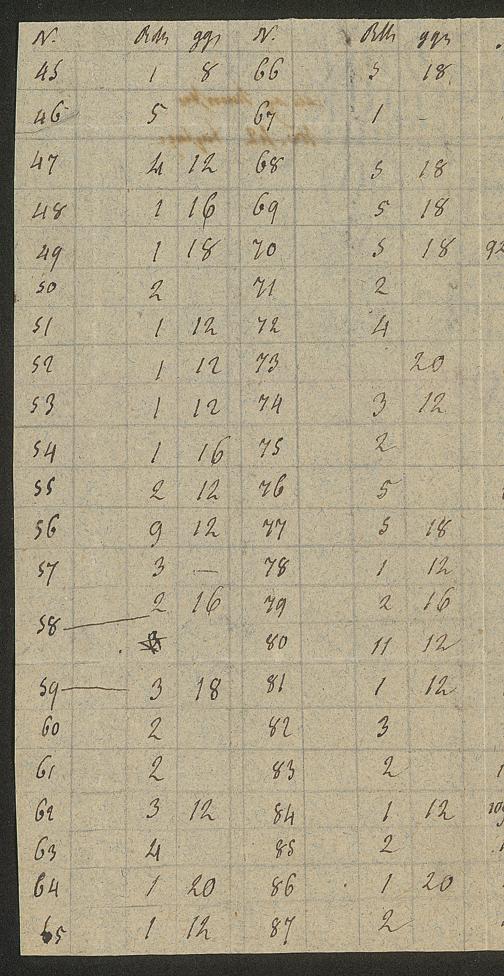 N. Rth ggr N. Rth ggr
45 1 8 66 5 18
46 5 67 1 -
47 4 12 68 5 18
48 1 16 69 5 18
49 1 18 70 5 18 92
50 2 71 2
51 1 12 72 4
52 1 12 73 20
53 1 12 74 3 12
54 1 16 75 2
55 2 12 76 5
56 9 12 77 5 18
57 3 — 78 1 12
58 2 16 79 2 16
80 11 12
59 3 18 81 1 12
60 2 82 3
61 2 83 2
62 3 12 84 1 12
63 4 85 2
64 1 20 86 1 20
65 1 12 87 2